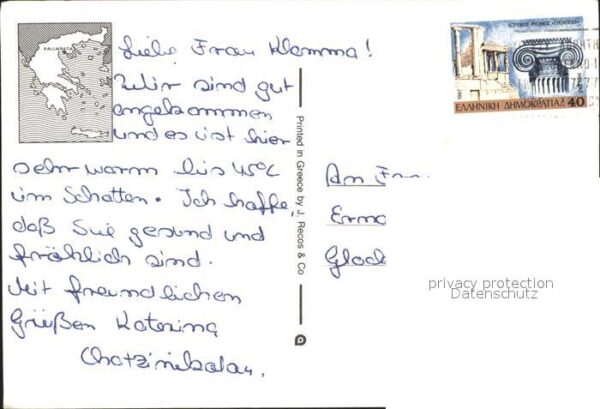 KALLIKRATIA
Liebe Frau Klamma!
Wir sind gut
angekommen
und es ist hier
sehr warm bis 45°C
im Schatten. Ich hoffe,
daß Sie gesund und
fröhlich sind.
Mit freundlichen
Grüßen Katerina
Chatzinikolau.
Printed in Greece by J. Recos & Co
1987
ΕΛΛΗΝΙΚΗ ΔΗΜΟΚΡΑΤΙΑ 40
An Frau
Erma
Glock
privacy protection
Datenschutz